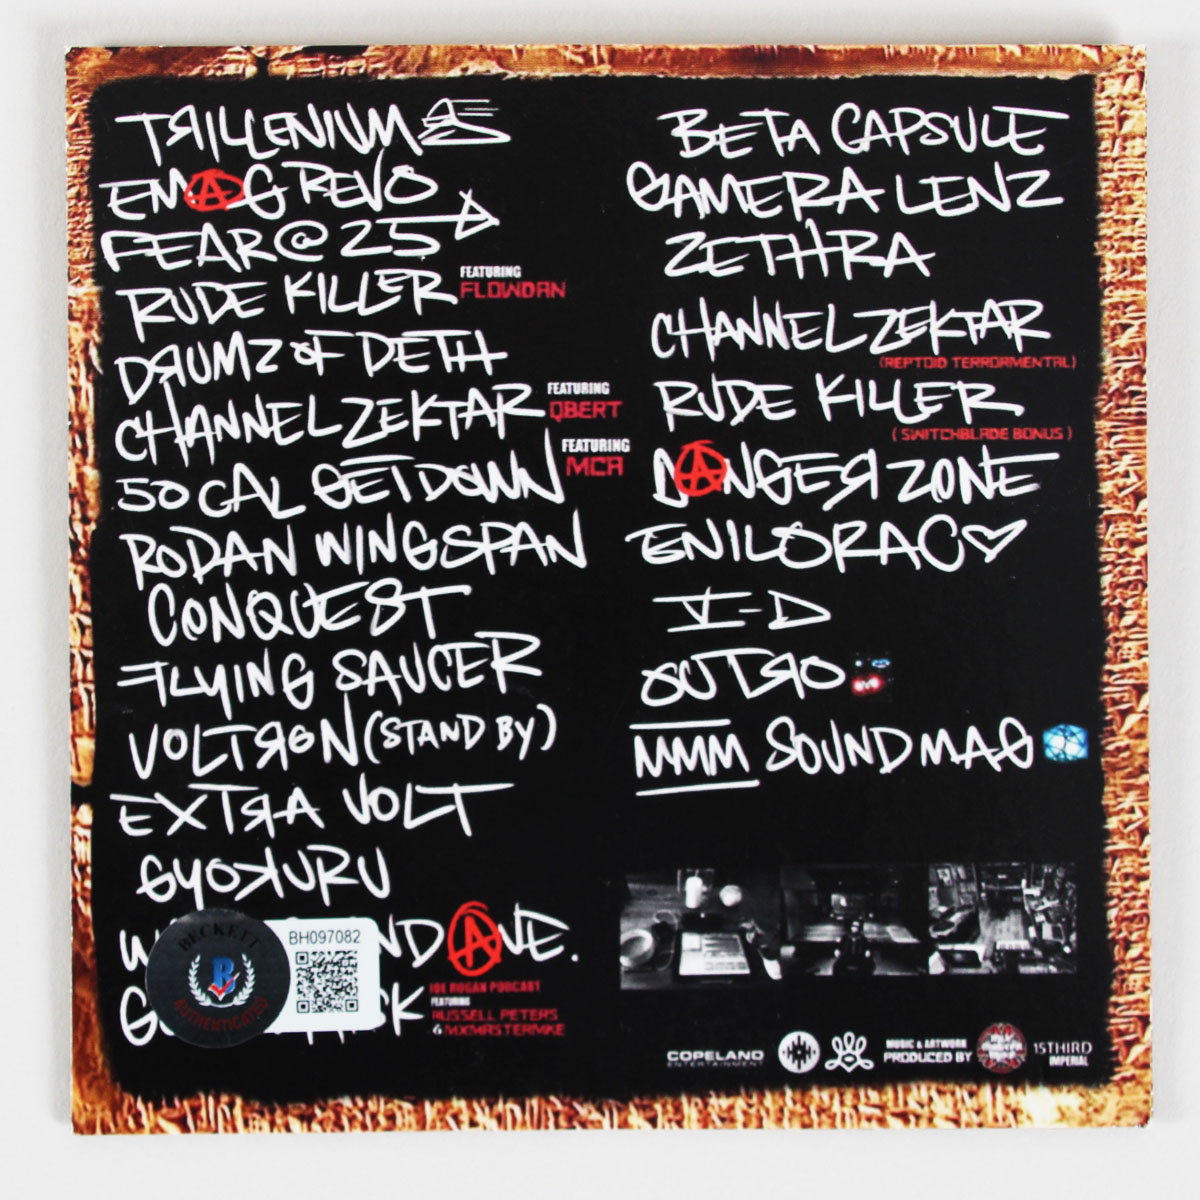 TRILLENIUM
EMAG REVO
FEAR @ 25
RUDE KILLER FEATURING FLOWDAN
DRUMZ OF DETH
CHANNEL ZEKTAR FEATURING QBERT
50 CAL GETDOWN FEATURING MCA
RODAN WINGSPAN
CONQUEST
FLYING SAUCER
VOLTRON (STAND BY)
EXTRA VOLT
GYOKURU
AVE.
JOE ROGAN PODCAST
FEATURING
RUSSELL PETERS
& MIXMASTERMIKE
BECKETT
AUTHENTICATED
BH097082
BETA CAPSULE
GAMERA LENZ
ZETHRA
CHANNEL ZEKTAR
(REPTOID TERRORMENTAL)
RUDE KILLER
(SWITCHBLADE BONUS)
DANGER ZONE
ENILORAC
V-D
OUTRO
MMM SOUND MAG
COPELAND
ENTERTAINMENT
MUSIC & ARTWORK
PRODUCED BY
1STHIRD
IMPERIAL